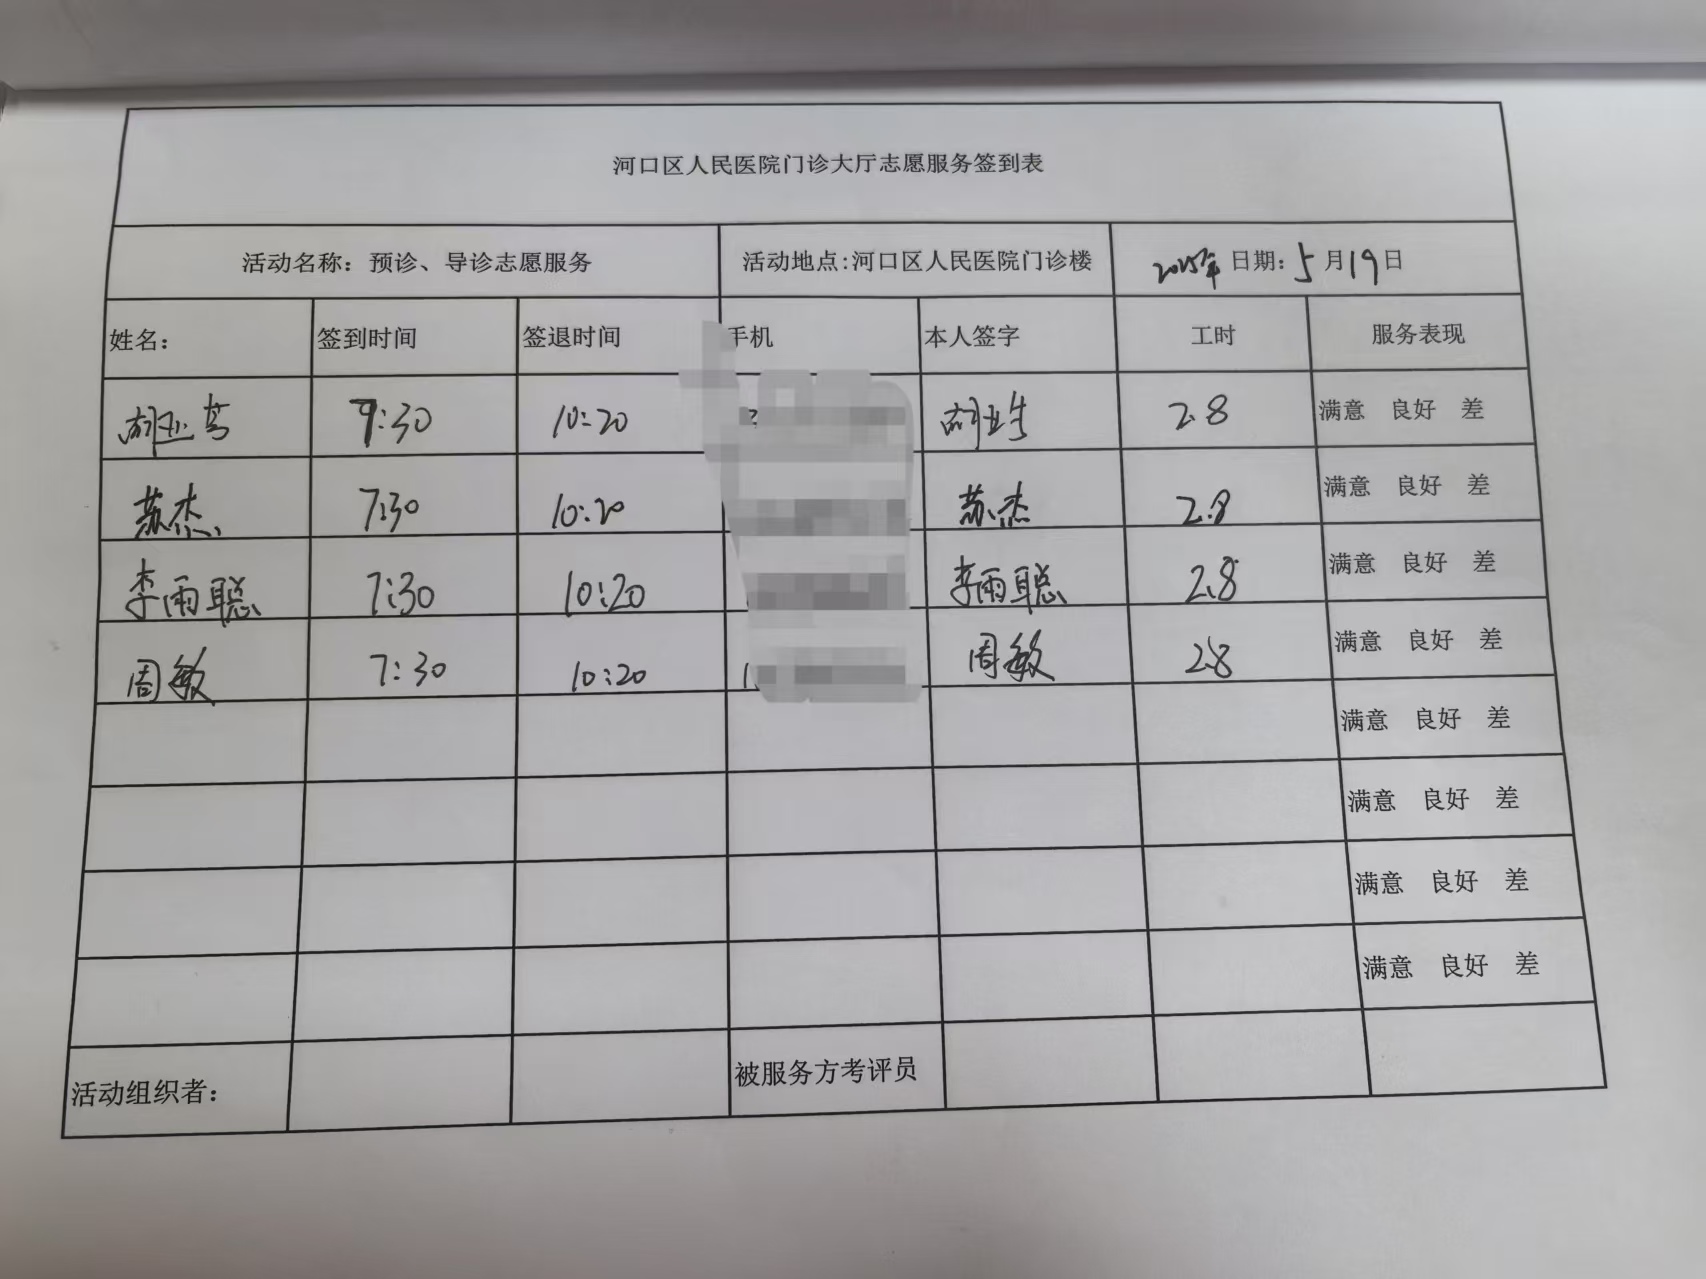 河口区人民医院门诊大厅志愿服务签到表
活动名称：预诊、导诊志愿服务 活动地点:河口区人民医院门诊楼 2025年 日期：5月19日
姓名： 签到时间 签退时间 手机 本人签字 工时 服务表现
:30 10:20 2.8 满意 良好 差
苏杰 7:30 10:20 苏杰 2.8 满意 良好 差
李雨聪 7:30 10:20 李雨聪 2.8 满意 良好 差
周敏 7:30 10:20 周敏 2.8 满意 良好 差
满意 良好 差
满意 良好 差
满意 良好 差
满意 良好 差
活动组织者： 被服务方考评员